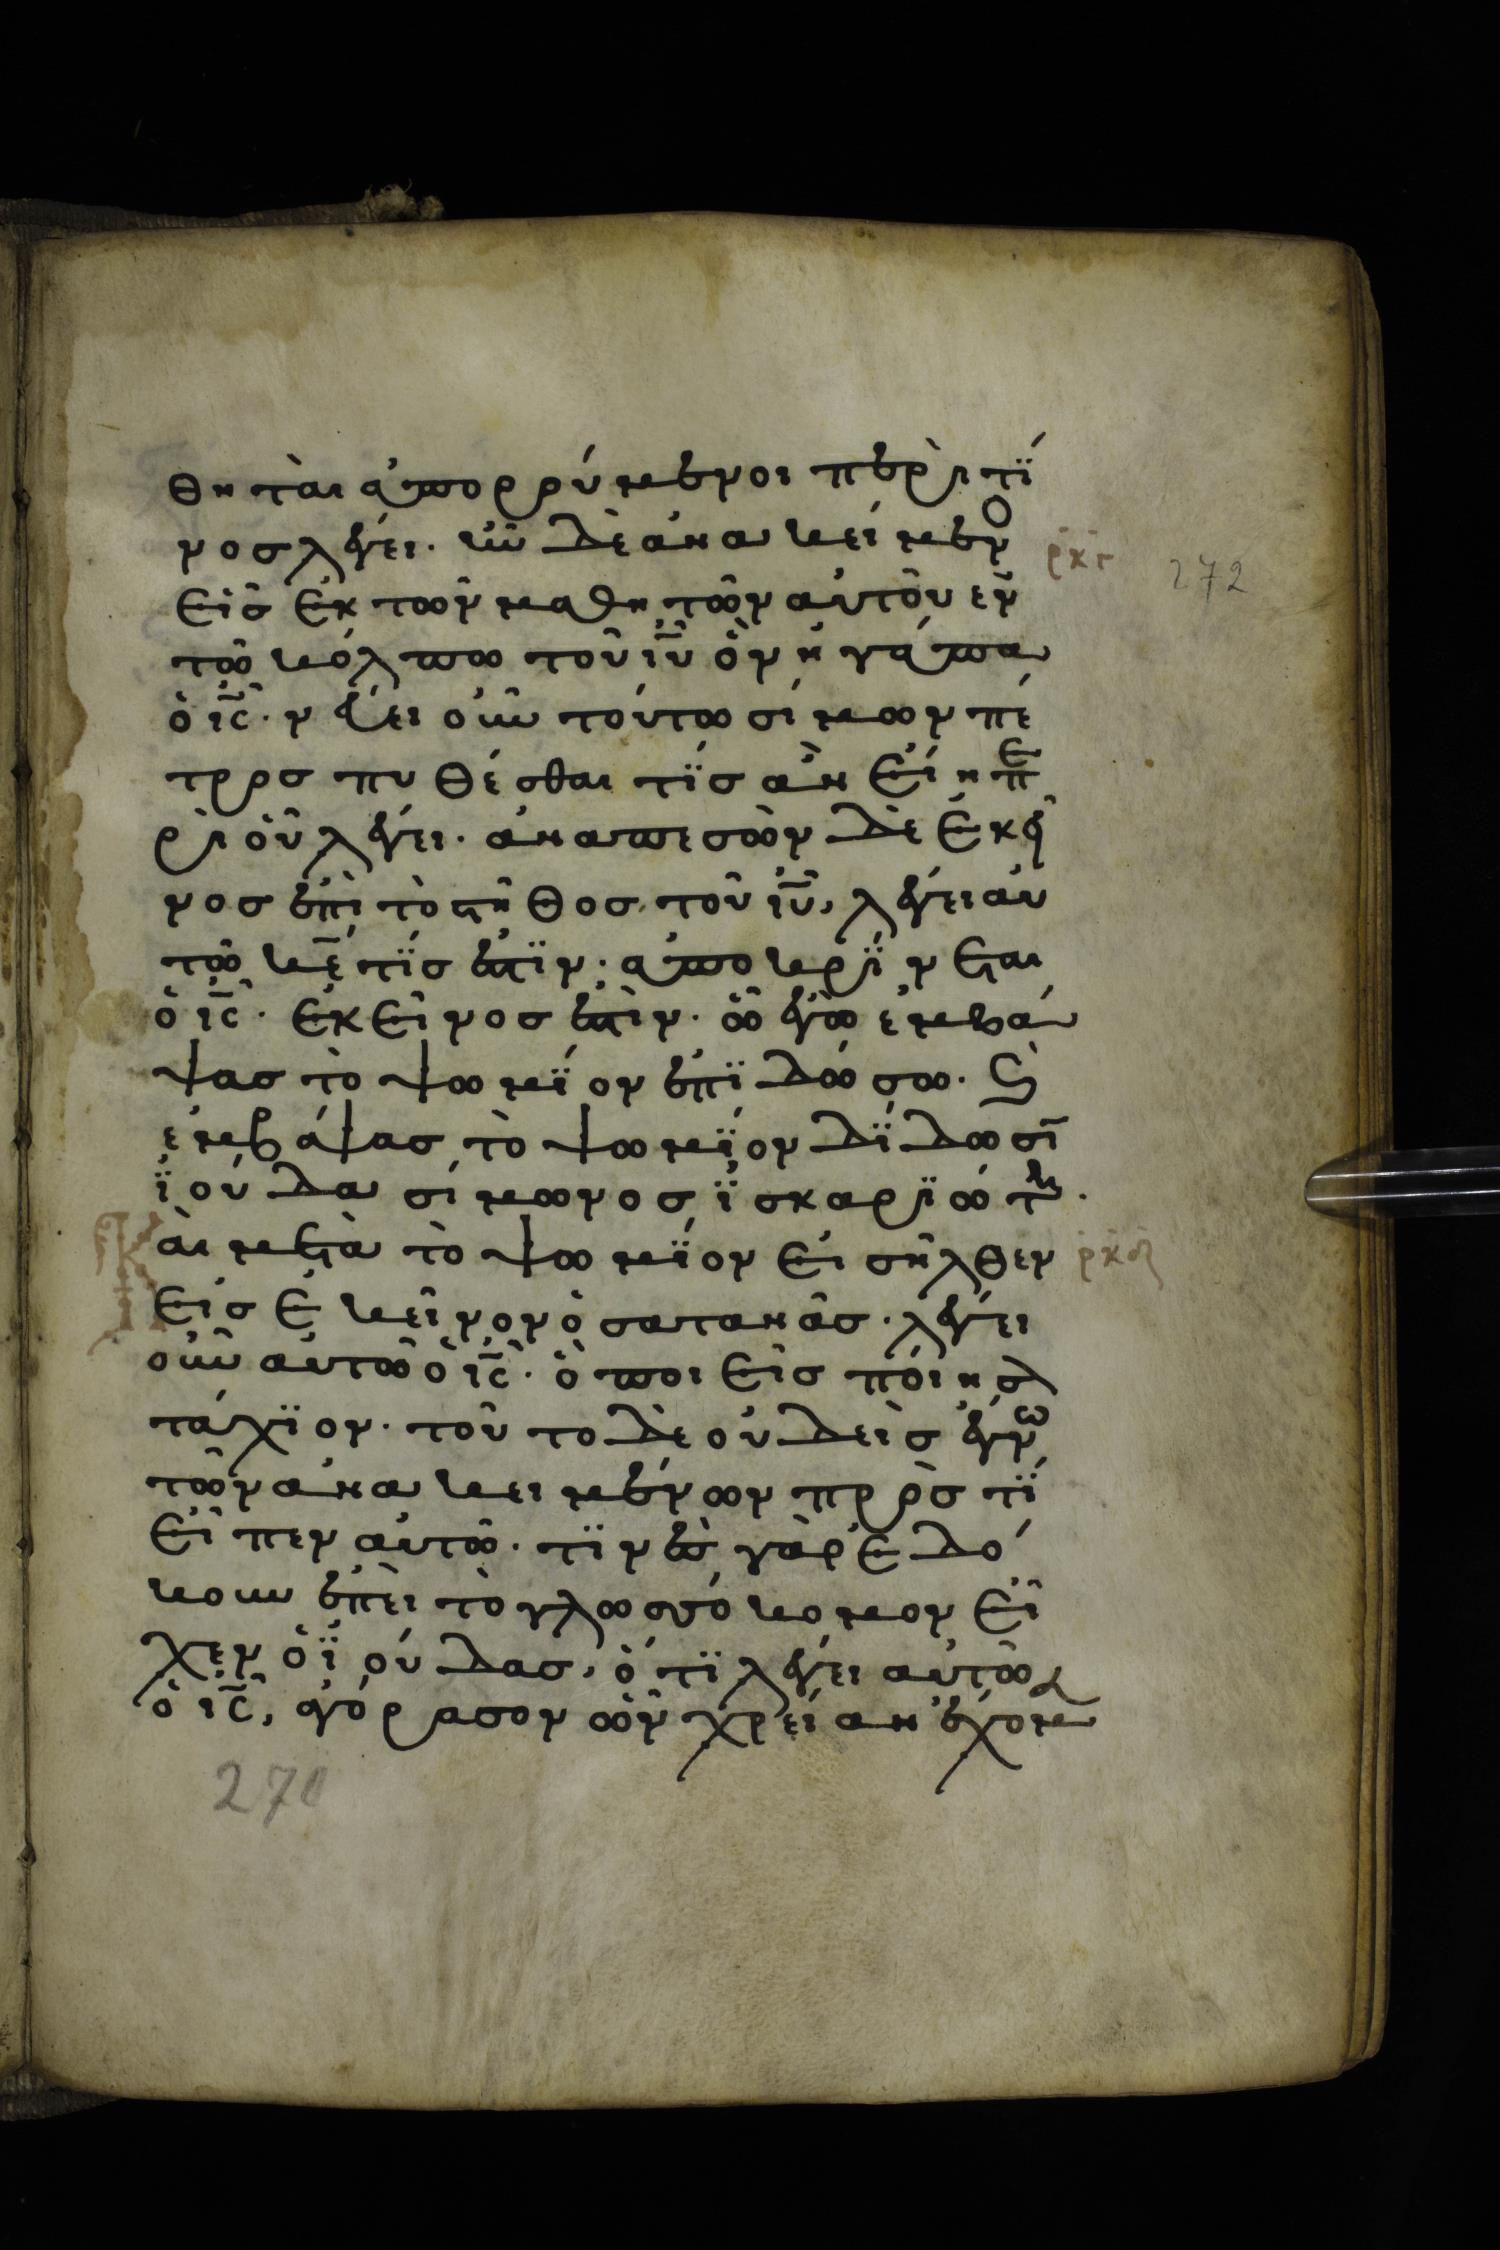 θηταὶ ἀπορρούμενοι περὶ τί
νος λέγει· ἦν δὲ ἀνακείμενο
ρκγ
272
εἷς ἐκ τῶν μαθητῶν αὐτοῦ ἐν
τῶ κόλπω τοῦ ιῦ ὃν ἠγάπα
ὁ ις· νεύει οὖν τούτω σίμων πέ
τρος πυθέσθαι τίς ἂν εἴη πε
ρὶ οὗ λέγει· ἀναπεσὼν δὲ ἐκεῖ
νος ἐπὶ τὸ στῆθος τοῦ ιῦ, λέγει αὐ
τῶ κε τίς ἐστιν· ἀποκρίνεται
ὁ ις· ἐκεῖνος ἐστιν· ὧ ἐγὼ ἐμβά
ψας τὸ ψωμίον ἐπιδώσω· ϗ
ἐμβάψας τὸ ψωμίον δίδωσι
ἰούδα σίμωνος ἰσκαριώτη·
Καὶ μετὰ τὸ ψωμίον εἰσῆλθεν
ρκδ
εἰς ἐκεῖνον ὁ σατανᾶς· λέγει
οὖν αὐτῶ ὁ ις· ὃ ποιεῖς ποίησον
τάχιον· τοῦτο δὲ οὐδεὶς ἔγνω
τῶν ἀνακειμένων πρὸς τί
εἶπεν αὐτῶ· τινὲς γὰρ ἐδό
κουν ἐπεὶ τὸ γλωσσόκομον εἶ
χεν ὁ ἰούδας, ὅτι λέγει αὐτῶ
ὁ ις, ἀγόρασον ὧν χρείαν ἔχομ
270